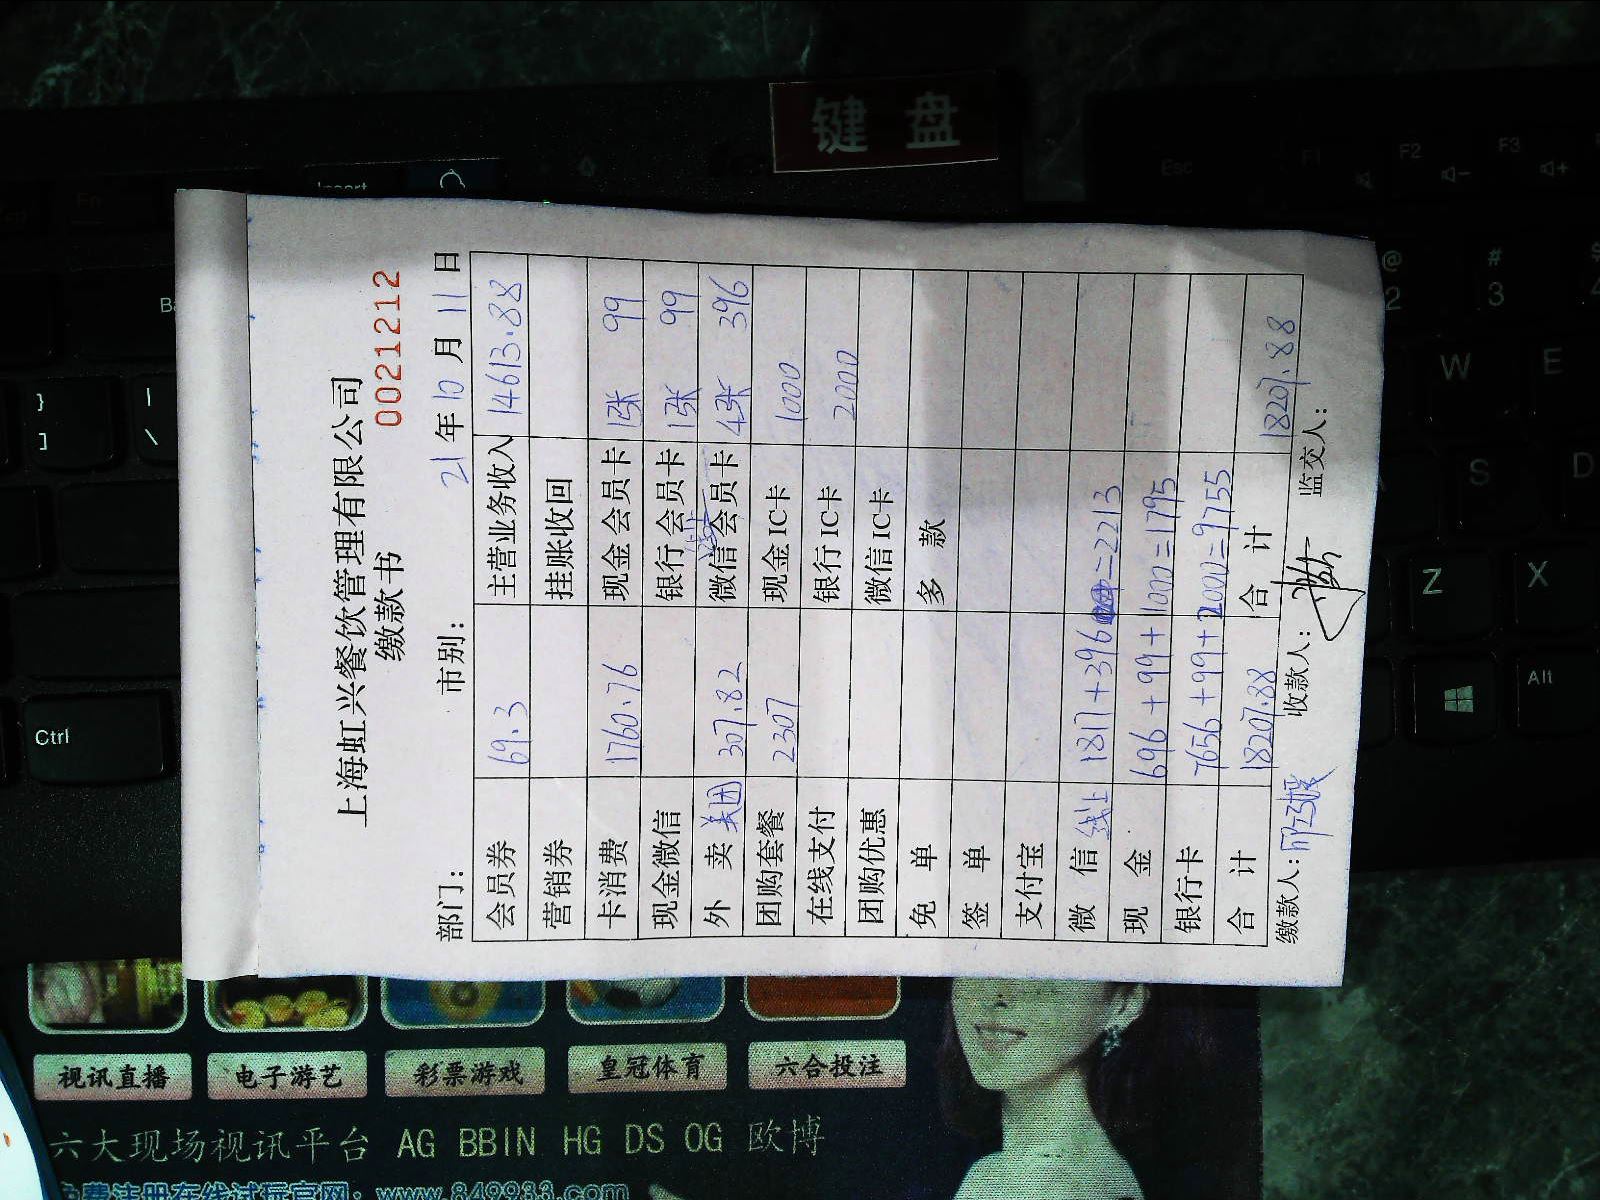 键 盘
Insert
Esc
F1
F2
F3
@
2
#
3
W
E
S
D
Z
X
Alt
}
]
|
\
Ctrl
上海虹兴餐饮管理有限公司
缴款书
0021212
部门： 市别： 21年10月11日
会员券 69.3 主营业务收入 14613.88
营销券 挂账收回
卡消费 1760.76 现金会员卡 1张 99
现金微信 银行会员卡 1张 99
外 卖 美团 307.82 微信会员卡 4张 396
团购套餐 2307 现金IC卡 1000
在线支付 银行IC卡 2000
团购优惠 微信IC卡
免 单 多 款
签 单
支付宝
微 信 线上 1817+396=2213
现 金 696+99+1000=1795
银行卡 7656+99+2000=9755
合 计 18207.88 合 计 18207.88
缴款人： 收款人： 监交人：
视讯直播 电子游艺 彩票游戏 皇冠体育 六合投注
六大现场视讯平台 AG BBIN HG DS OG 欧博
免费注册在线试玩官网：www.849933.com